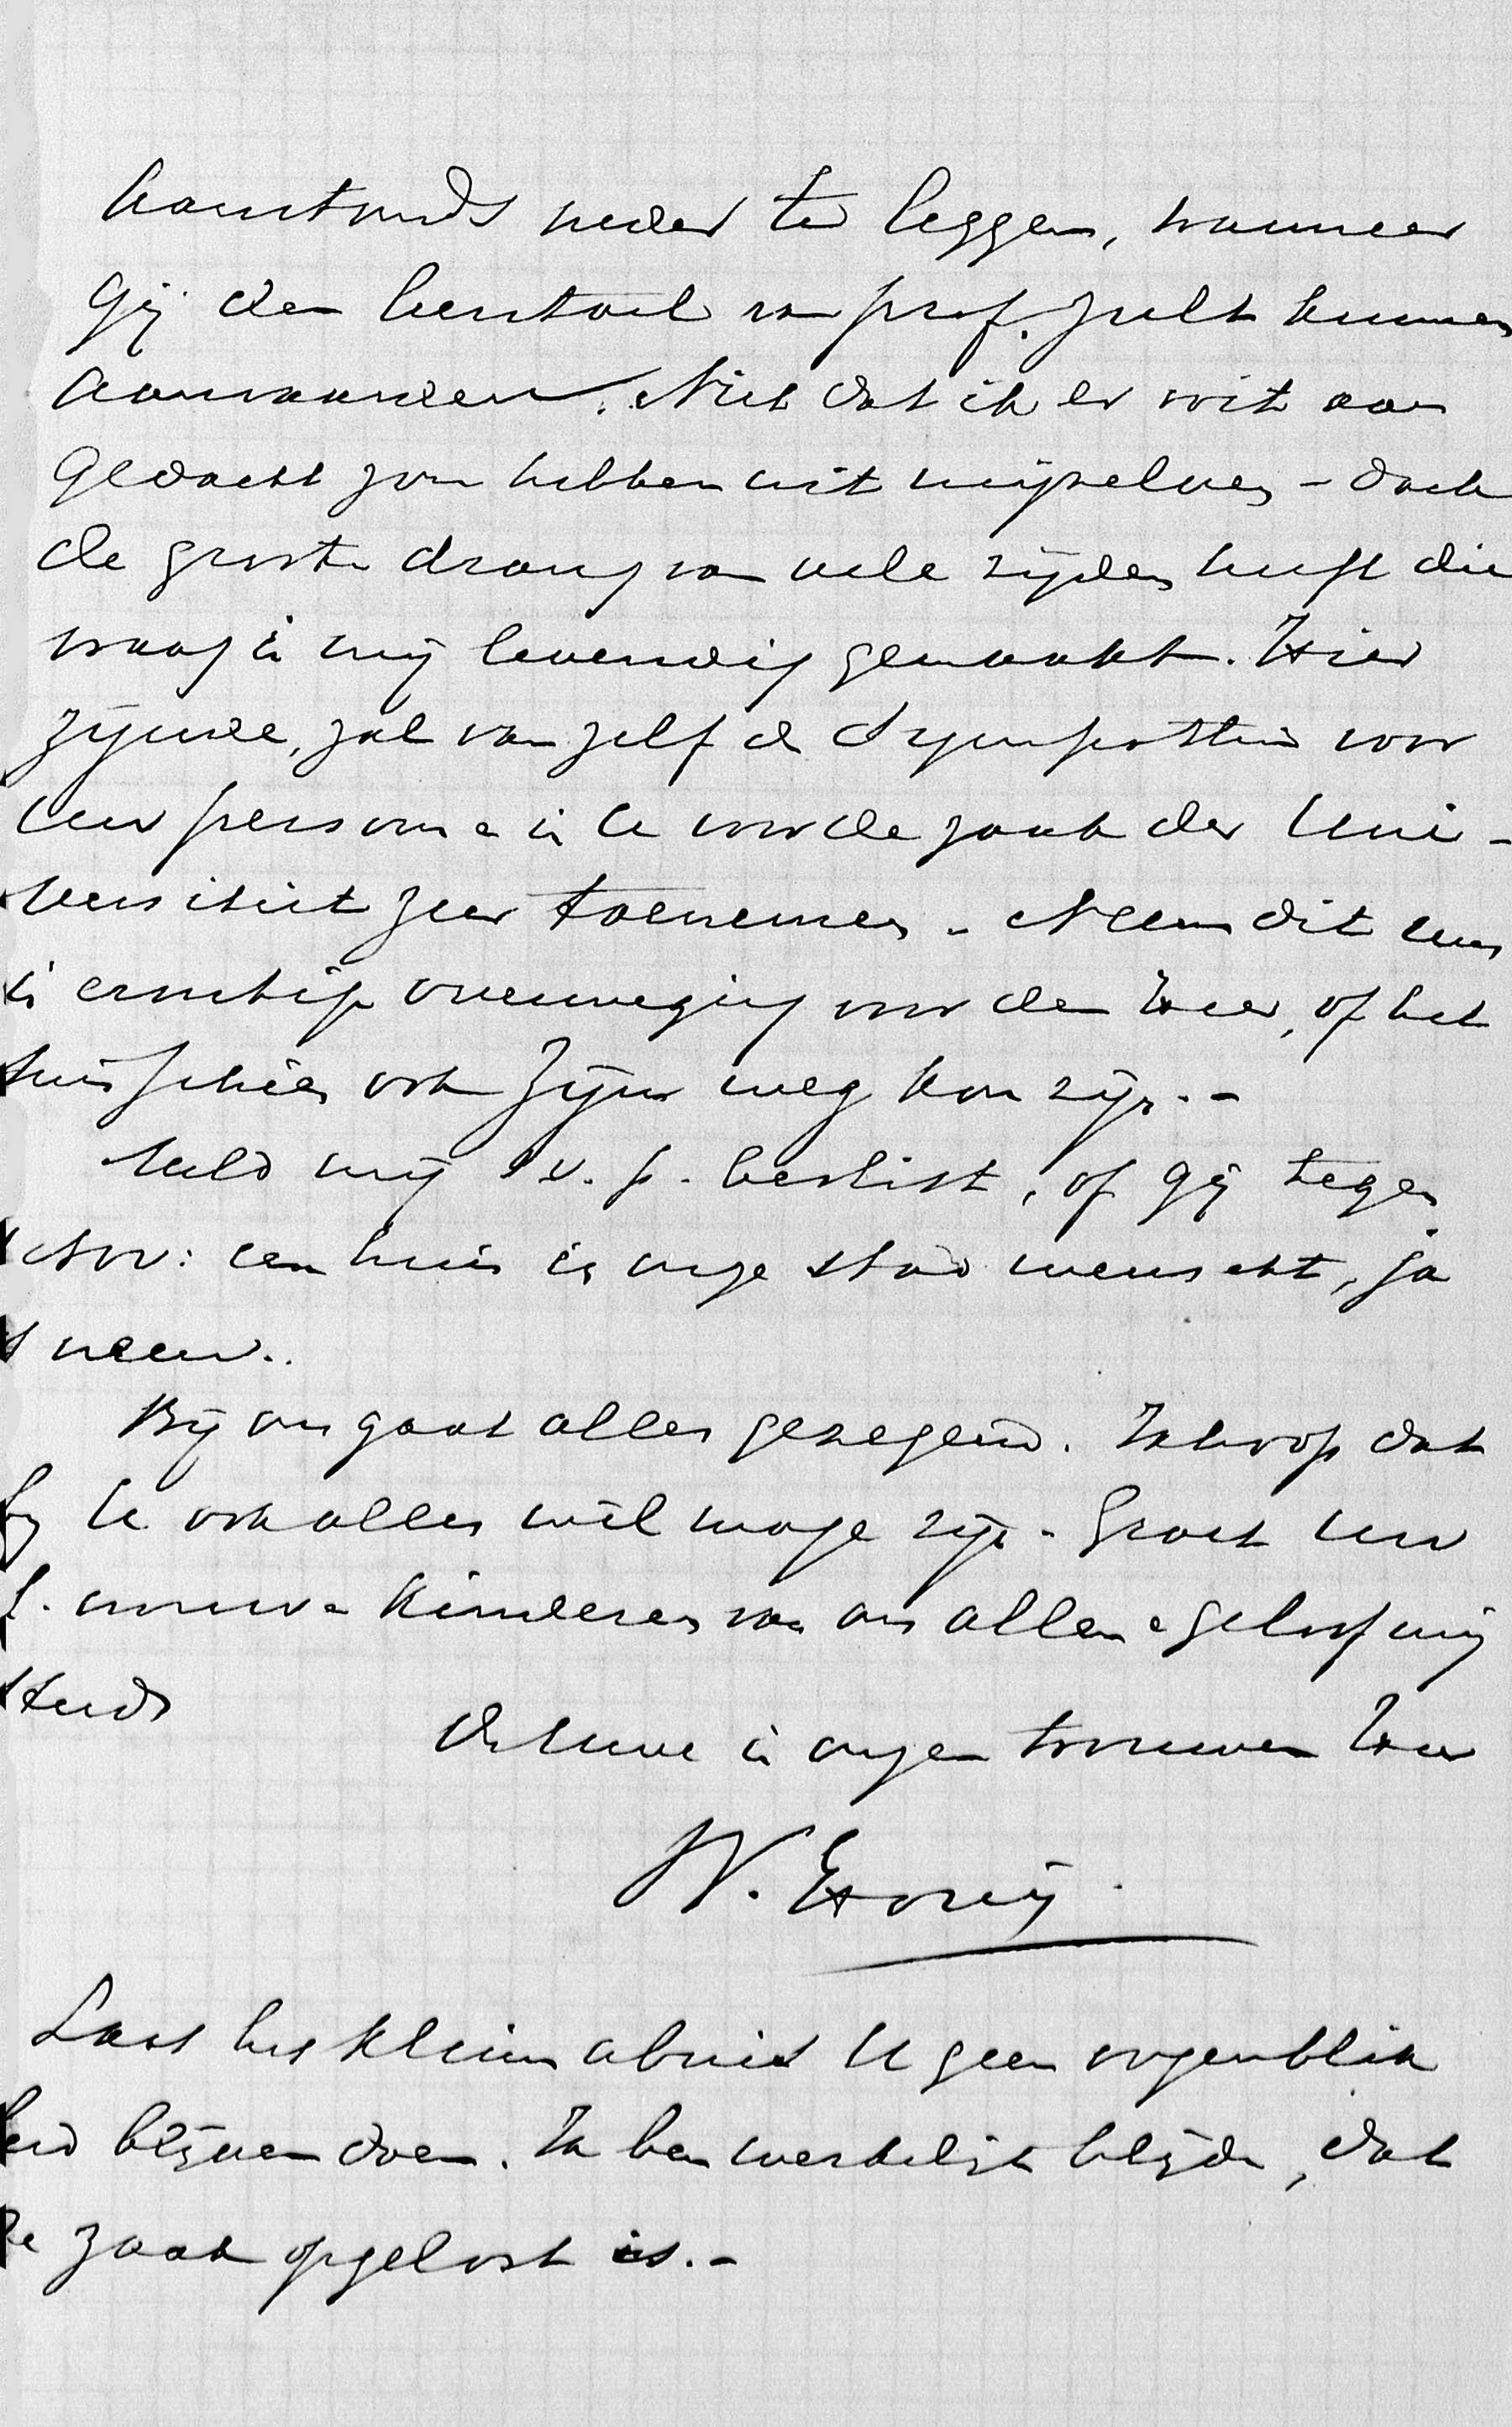 komstonds neder te leggen, wanneer
Gij den leerstoel van prof. zult kunnen
aanvaarden. Niet dat ik er ooit aan
gedacht zou hebben uit mijzelven – doch
de groote drang van vele zijden heeft die
vraag in mij levendig gemaakt. Hier
zijnde, zal van zelf de sympathie voor
Uw persoon en in U voor de zaak der Uni-
versiteit zeer toenemen. – Neem dit eens
in ernstige overweging voor den Heer, of het
misschien ook Zijn weg kon zijn. –
Meld mij s.v.p. beslist, of gij tegen
Nov: een huis in onze stad wenscht, ja
of neen.
Bij ons gaat alles gezegend. Ik hoop dat
bij U ook alles wel moge zijn. – Groet Uw
l. vrouw en kinderen van ons allen en geloof mij
steeds
de Uwe in onzen trouwen Heer
W. Hovij.
Laat het kleine abuis U geen oogenblik
leed blijven doen. Ik ben werkelijk blijde, dat
de zaak opgelost is. –